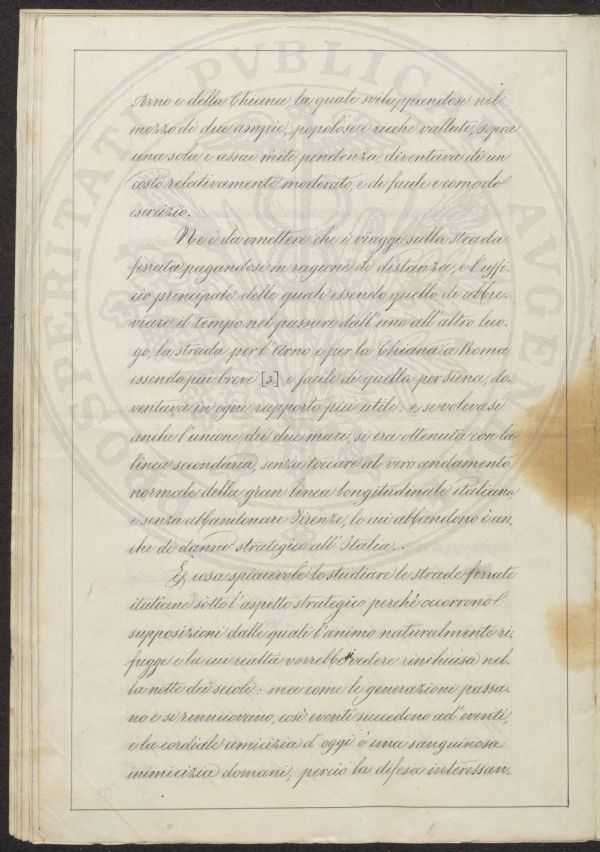 Arno e della Chiana, la quale sviluppandosi nel
mezzo di due ampie, popolose e ricche vallate, sopra
una sola e assai mite pendenza, diventava di un
costo relativamente moderato, e di facile e comodo
esercizio.
Ne è da omettere che i viaggi sulla strada
ferrata pagandosi in ragione di distanza, e l'uffi-
cio principale delle quali essendo quello di abbre-
viare il tempo nel passare dall'uno all'altro luo-
go, la strada per l'Arno e per la Chiana a Roma
essendo più breve [3] e facile di quella per Siena, do-
ventava in ogni rapporto più utile: e se volevasi
anche l'unione dei due mari, si era ottenuta con la
linea secondaria, senza toccare al vero andamento
normale della gran linea longitudinale italiana
e senza abbandonare Firenze, lo cui abbandono è an-
che di danno strategico all'Italia.
È cosa spiacevole lo studiare le strade ferrate
italiane sotto l'aspetto strategico perchè occorrono
supposizioni dalle quali l'animo naturalmente ri-
fugge e la cui realtà vorrebbe vedere rinchiusa nel-
la notte dei secoli: ma come le generazioni passa-
no e si rinnuovano, così eventi succedono ad eventi,
e la cordiale amicizia d'oggi è una sanguinosa
inimicizia domani; perciò la difesa interessan-
PROSPERITATI PVBLICAE AVGENDAE